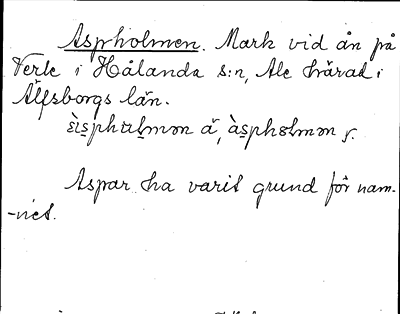 Aspholmen. Mark vid ån på
Verle i Hålanda s:n, Ale härad i
Älfsborgs län.
àsphɵlmən
Aspar ha varit grund för nam-
-net.